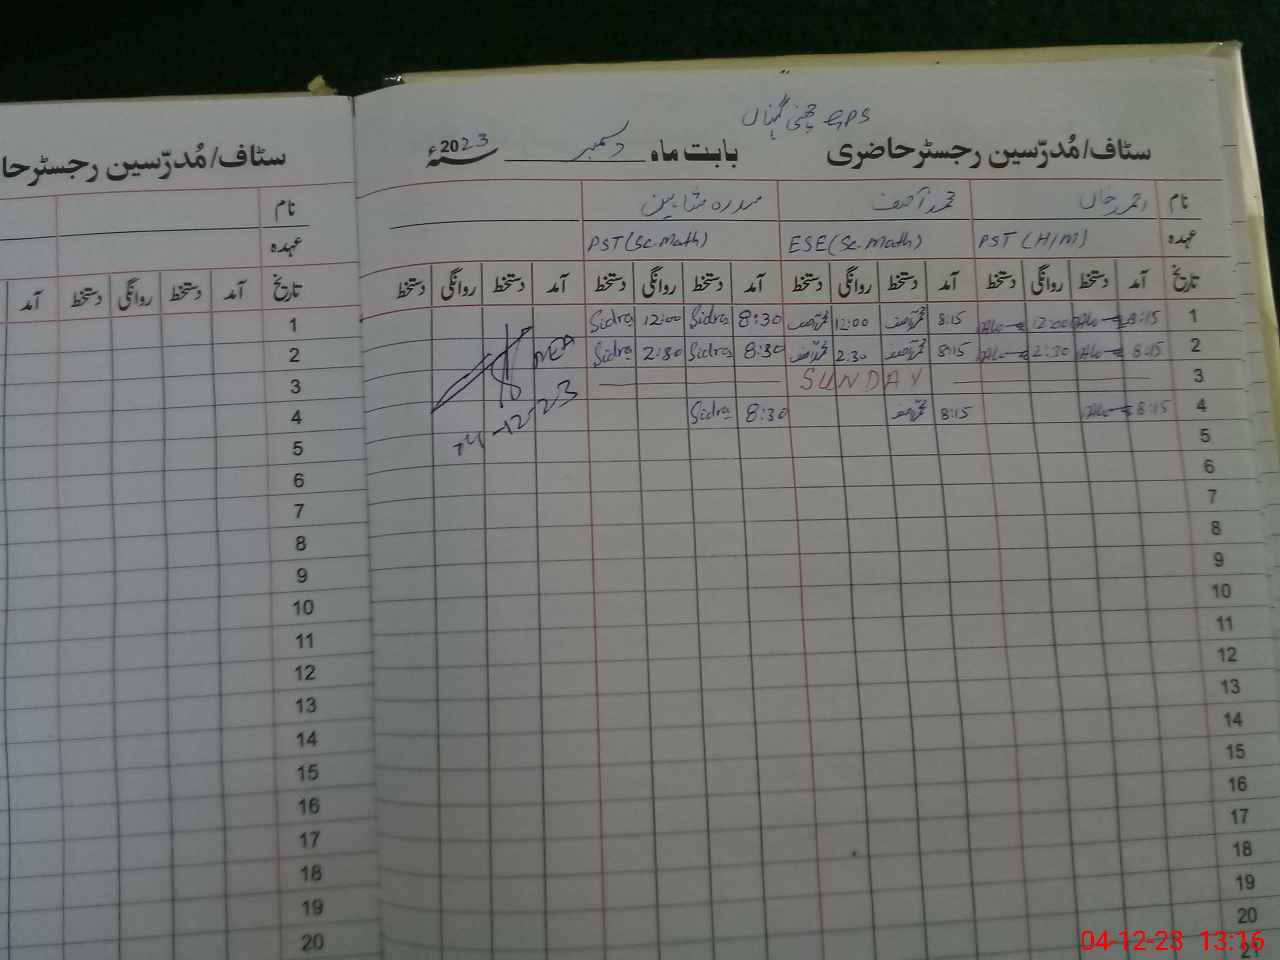 GPS چھنی گہناں
سٹاف/مُدرّسین رجسٹر حاضری بابت ماہ دسمبر سنہ 2023ء
نام احمد خاں محمد آصف سدرہ شاہین
عہدہ PST (H/M) ESE (Sc. Math) PST (Sc. Math)
تاریخ آمد دستخط روانگی دستخط آمد دستخط روانگی دستخط آمد دستخط روانگی دستخط آمد دستخط روانگی دستخط
1 8:15 12:00 8:15 محمد آصف 12:00 محمد آصف 8:30 Sidra 12:00 Sidra
2 8:15 2:30 8:15 محمد آصف 2:30 محمد آصف 8:30 Sidra 2:30 Sidra
3 SUNDAY
4 8:15 8:15 محمد آصف 8:30 Sidra
MEA
04-12-23
5
6
7
8
9
10
11
12
13
14
15
16
17
18
19
20
21
سٹاف/مُدرّسین رجسٹر حا
نام
عہدہ
تاریخ آمد دستخط روانگی دستخط آمد
1
2
3
4
5
6
7
8
9
10
11
12
13
14
15
16
17
18
19
20
04-12-23 13:16